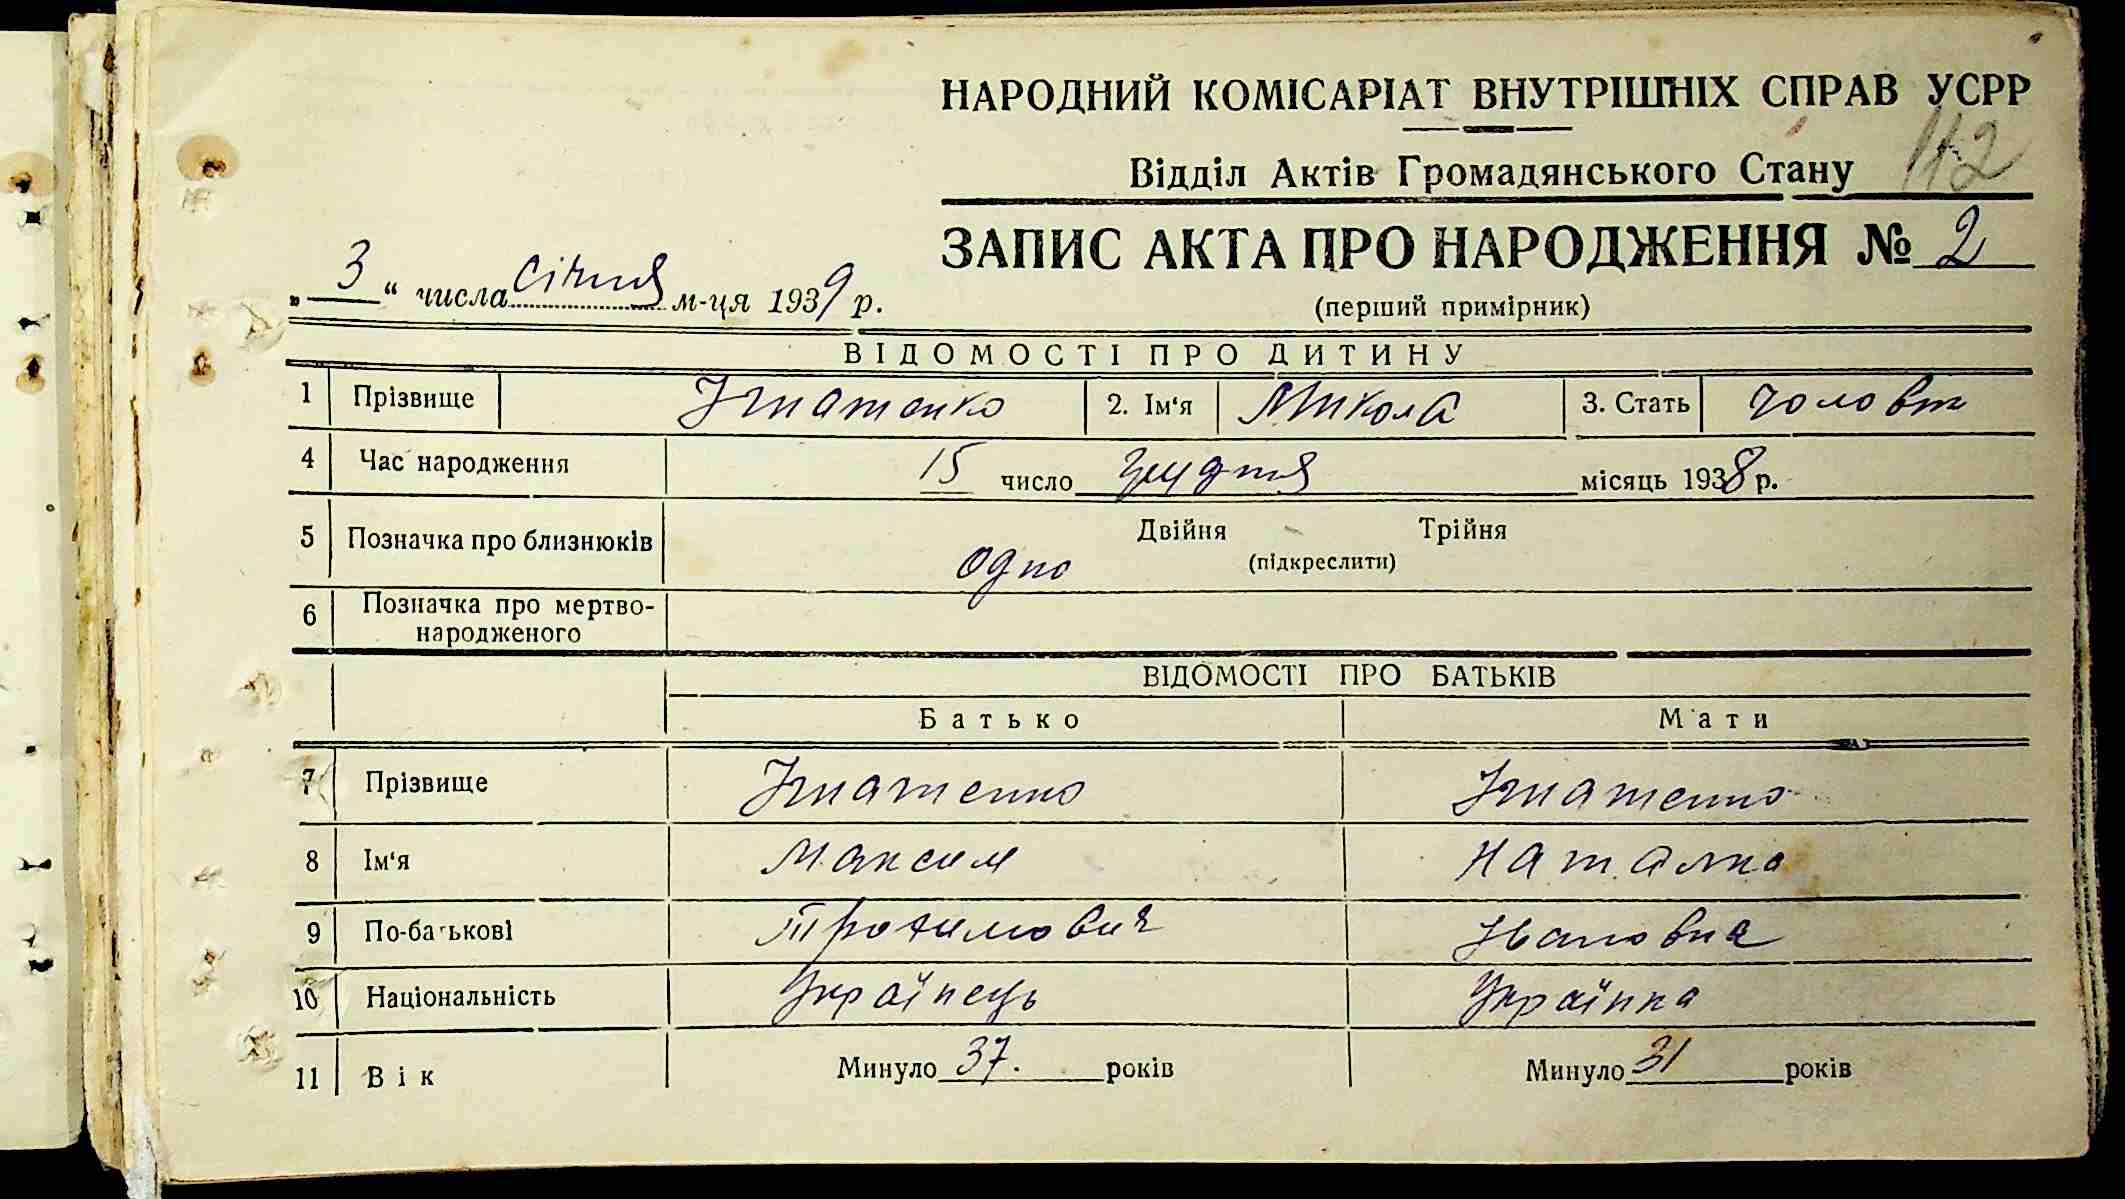 НАРОДНИЙ КОМІСАРІАТ ВНУТРІШНІХ СПРАВ УСРР
Відділ Актів Громадянського Стану 112
ЗАПИС АКТА ПРО НАРОДЖЕННЯ № 2
„ 3 “ числа січня м-ця 1939 р.
(перший примірник)
ВІДОМОСТІ ПРО ДИТИНУ
1 Прізвище Ігнатенко 2. Ім‘я Микола 3. Стать чоловіч
4 Час народження 15 число грудня місяць 1938 р.
5 Позначка про близнюків одно Двійня Трійня
(підкреслити)
6 Позначка про мертво-
народженого
ВІДОМОСТІ ПРО БАТЬКІВ
Батько Мати
7 Прізвище Ігнатенко Ігнатенко
8 Ім‘я Максим Наталка
9 По-батькові Трохимович Івановна
10 Національність Українець Українка
11 Вік Минуло 37. років Минуло 31 років